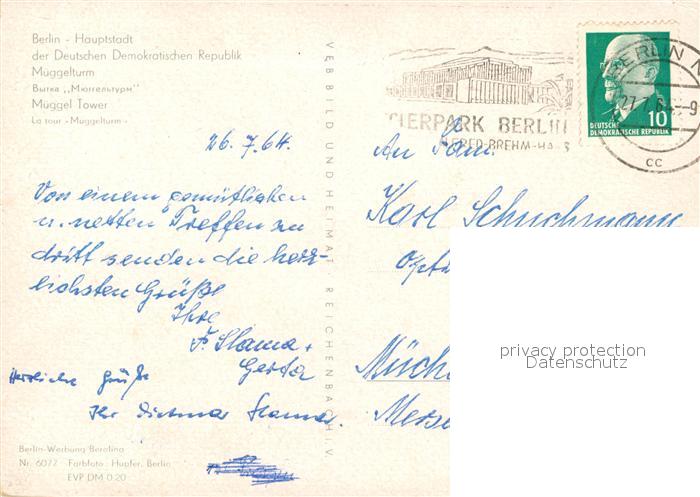 Berlin - Hauptstadt
der Deutschen Demokratischen Republik
Müggelturm
Вытка „Мюггельтурм"
Müggel Tower
La tour «Müggelturm»
26.7.64.
Von einem gemütlichen
u. netten Treffen zu
dritt senden die herz-
lichsten Grüße
Ihre
F. Slama +
Gerda
Herzliche Grüße
Ihr Dietmar Slama.
Berlin-Werbung Berolina
Nr. 6077 - Farbfoto: Hupfer, Berlin
EVP DM 0.20
VEB BILD UND HEIMAT REICHENBACH I. V.
TIERPARK BERLIN
ALFRED-BREHM-HAUS
BERLIN
27.7.64
CC
DEUTSCHE
DEMOKRATISCHE REPUBLIK
10
An Fam.
Karl Schuchmann
Müch
Merse
privacy protection
Datenschutz